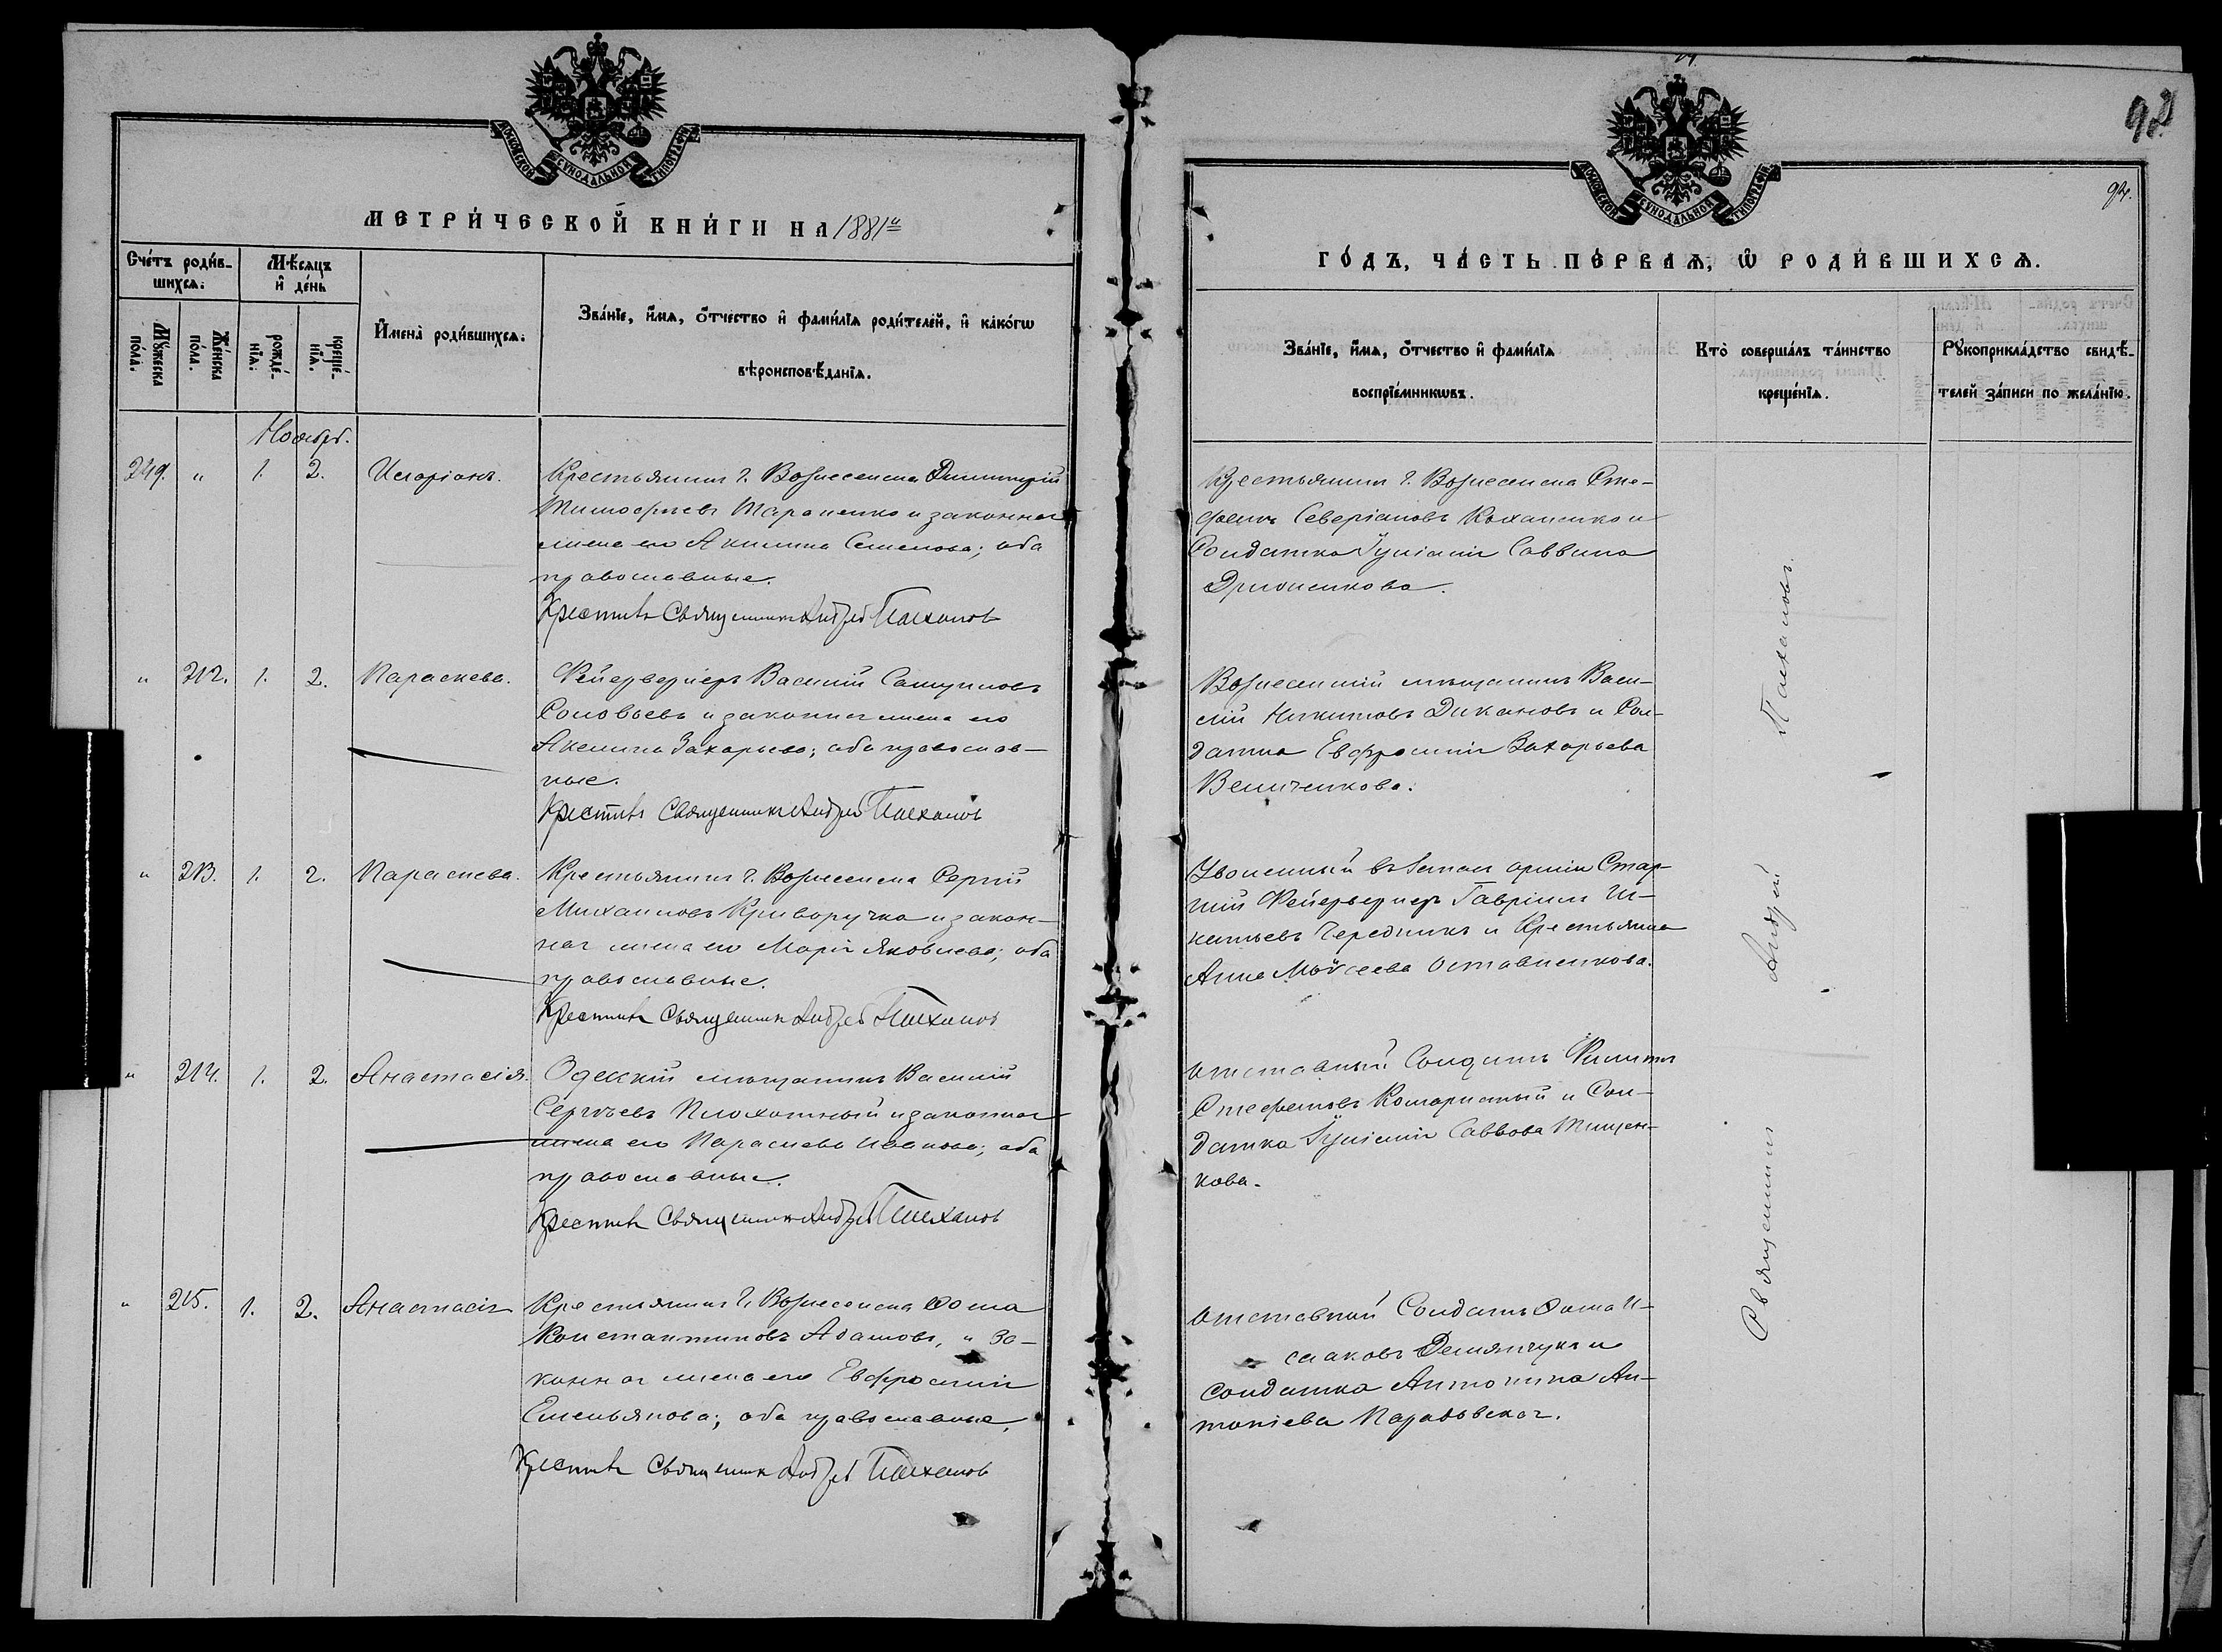 МОСКОВСКОЙ СѴНОДАЛЬНОЙ ТИПОГРАФІИ
МЕТРИ́ЧЕСКОЙ КНИ́ГИ НА 1881й
Сче́тъ роди́вшихсѧ:
Мѣ́сяцъ и҆ де́нь
Мꙋ́жеска по́ла.
Же́нска по́ла.
рожде́нїѧ:
креще́нїѧ.
И҆мена̀ роди́вшихсѧ:
Зва́нїе, и҆́мѧ, ѻ҆́тчество и҆ фами́лїѧ роди́телей, и҆ како́гѡ
вѣроисповѣ́данїѧ.
Ноябрь.
249. " 1. 2. Иларіонъ.
Крестьянинъ г. Вознесенска Димитрій
Тимофѣевъ Тараненко и законная
жена его Акилина Семенова; оба
православные.
Крестилъ Священникъ Андрей Плехановъ
" 212. 1. 2. Параскева.
Фейерверкеръ Василій
Соловьевъ и законная жена его
Акилина Захарьева; оба православ-
ные.
Крестилъ Священникъ Андрей Плехановъ
" 213. 1. 2. Параскева.
Крестьянинъ г. Вознесенска Сергій
Михаиловъ Криворучка и закон-
ная жена его Марія Яковлева; оба
православные.
Крестилъ Священникъ Андрей Плехановъ
" 214. 1. 2. Анастасія.
Одесскій мѣщанинъ Василій
Сергѣевъ Плохотный и законная
жена его Параскева Иванова; оба
православные.
Крестилъ Священникъ Андрей Плехановъ
" 215. 1. 2. Анастасія
Крестьянинъ г. Вознесенска Ѳома
Константиновъ Адамовъ, и за-
конная жена его Евфросинія
Емельянова; оба православные.
Крестилъ Священникъ Андрей Плехановъ
92
МОСКОВСКОЙ СѴНОДАЛЬНОЙ ТИПОГРАФІИ
ГО́ДЪ, ЧА́СТЬ ПЕ́РВАѦ, Ѡ҆ РОДИ́ВШИХСѦ.
Зва́нїе, и҆́мѧ, ѻ҆́тчество и҆ фами́лїѧ
воспрїе́мникѡвъ.
Кто̀ соверша́лъ та́инство
креще́нїѧ.
Рꙋкоприкла́дство свидѣ́-
телей за́писи по жела́нїю.
Крестьянинъ г. Вознесенска Сте-
фанъ Северіановъ Коханенко и
Солдатка Іуліанія Саввина
Вознесенскій мѣщанинъ Васи-
лій Никитовъ Дикановъ и Сол-
датка Евфросинія Захарьева
Величенкова.
Уволенный въ запасъ арміи Стар-
шій Фейерверкеръ Гавріилъ Иг-
натьевъ Чередникъ и Крестьянка
Анна Моѵсеева Оставненкова.
Отставный Солдатъ Филиппъ
Стефановъ Комаристый и Сол-
датка Іуліанія Саввова Тищен-
кова.
Отставный Солдатъ Ѳома И-
сааковъ Демянчукъ и
Солдатка Антонина Ан-
тоніева
Священникъ Андрей Плехановъ.